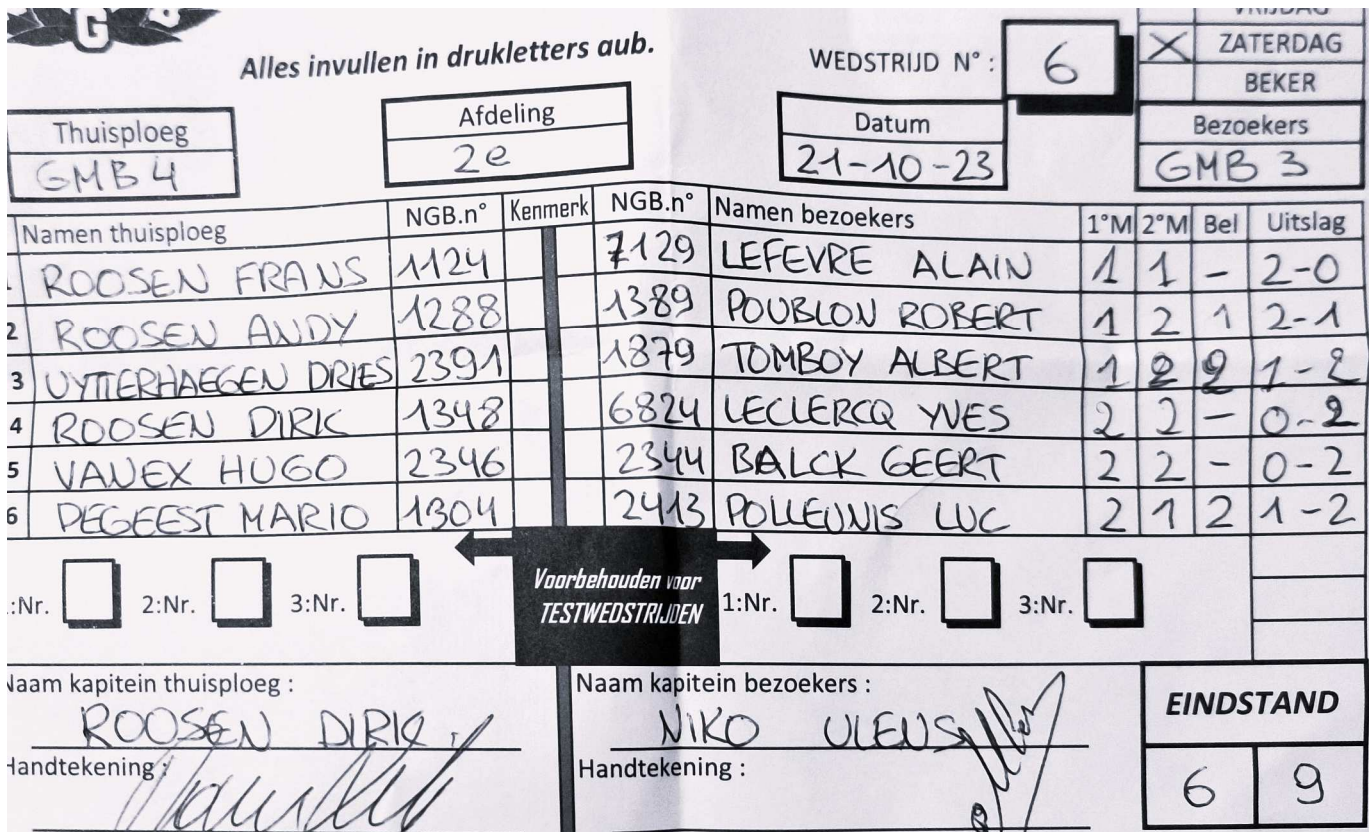 G B
VRIJDAG
Alles invullen in drukletters aub.
WEDSTRIJD N° : 6
X ZATERDAG
BEKER
Thuisploeg
GMB 4
Afdeling
2e
Datum
21-10-23
Bezoekers
GMB 3
Namen thuisploeg NGB.n° Kenmerk NGB.n° Namen bezoekers 1°M 2°M Bel Uitslag
ROOSEN FRANS 1124 7129 LEFEVRE ALAIN 1 1 - 2-0
2 ROOSEN ANDY 1288 1389 POUBLON ROBERT 1 2 1 2-1
3 UYTTERHAEGEN DRIES 2391 1879 TOMBOY ALBERT 1 2 2 1-2
4 ROOSEN DIRK 1348 6824 LECLERCQ YVES 2 2 - 0-2
5 VANEX HUGO 2346 2344 BALCK GEERT 2 2 - 0-2
6 PEGEEST MARIO 1304 2413 POLLEUNIS LUC 2 1 2 1-2
:Nr. 2:Nr. 3:Nr. Voorbehouden voor TESTWEDSTRIJDEN 1:Nr. 2:Nr. 3:Nr.
Naam kapitein thuisploeg :
ROOSEN DIRK
Handtekening :
Naam kapitein bezoekers :
NIKO ULENS
Handtekening :
EINDSTAND
6 9